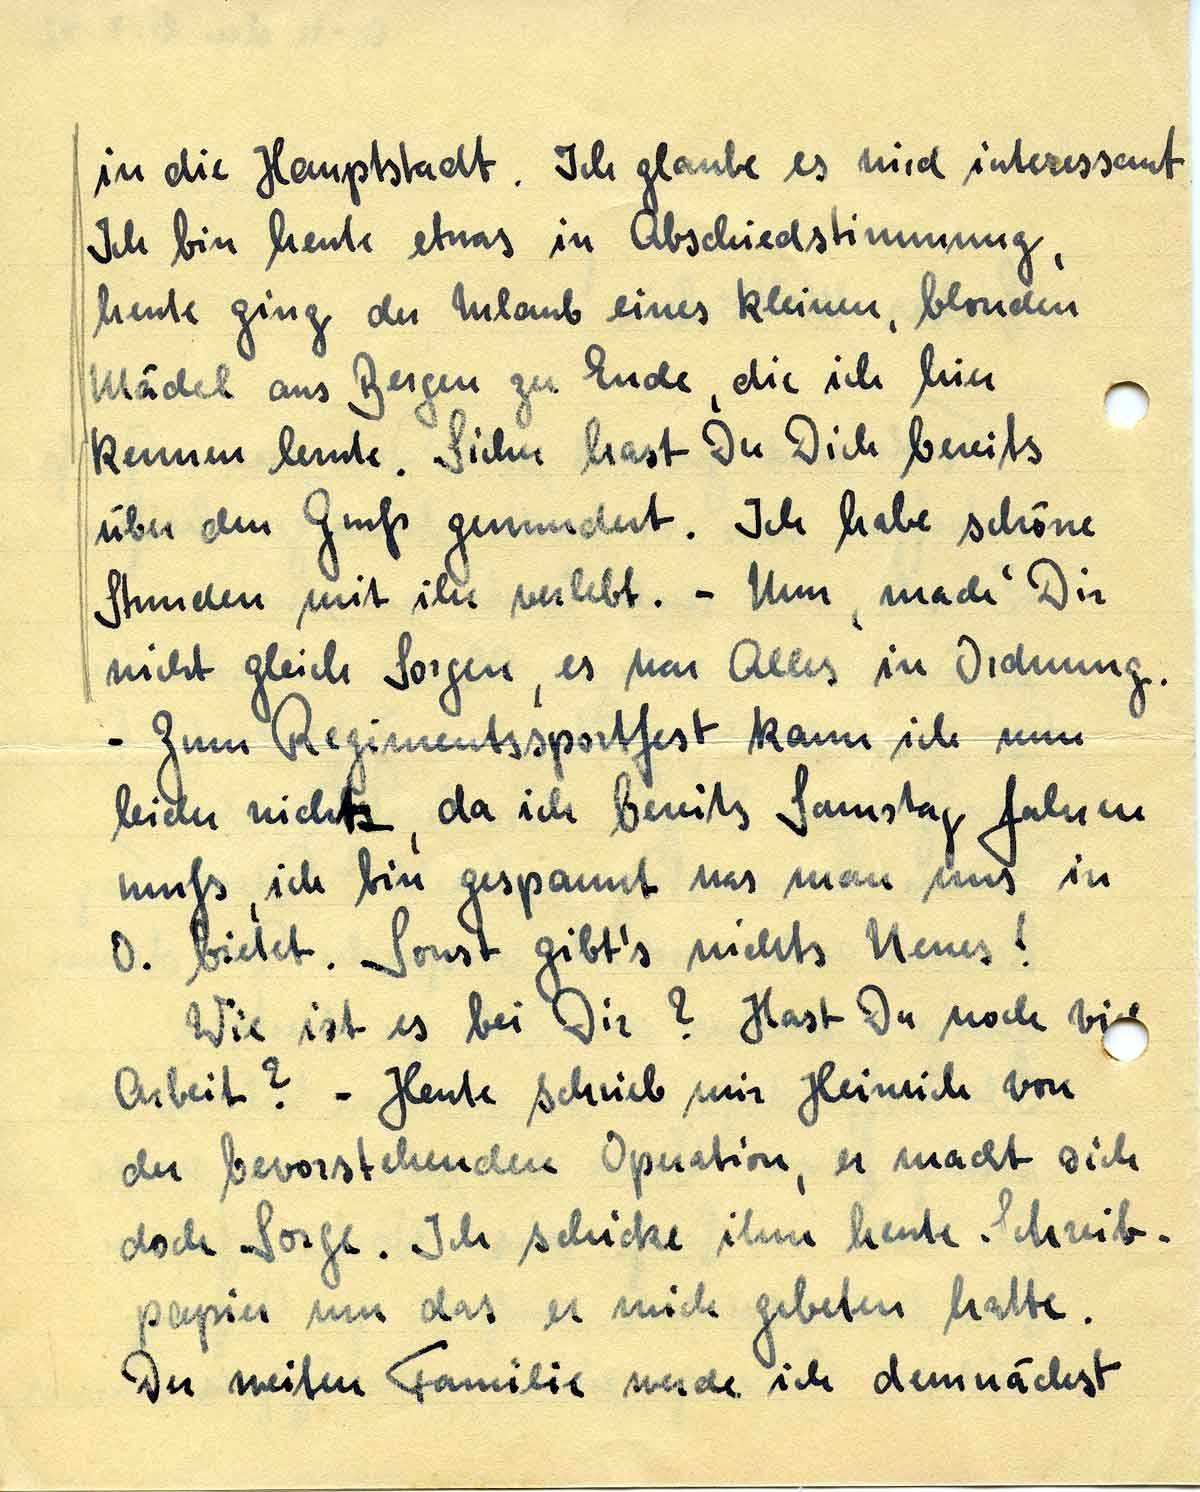 in die Hauptstadt. Ich glaube es wird interessant
Ich bin heute etwas in Abschiedstimmung,
heute ging der Urlaub eines kleinen, blonden
Mädel aus Bergen zu Ende, die ich hier
kennen lernte. Sicher hast Du Dich bereits
über den Gruß gewundert. Ich habe schöne
Stunden mit ihr verlebt. - Nun, mach' Dir
nicht gleich Sorgen, es war Alles in Ordnung.
- Zum Regimentssportfest kann ich nun
leider nicht, da ich bereits Samstag fahren
muß, ich bin gespannt was man uns in
O. bietet. Sonst gibt's nichts Neues!
Wie ist es bei Dir? Hast Du noch viel
Arbeit? - Heute schrieb mir Heinrich von
der bevorstehenden Operation, er macht sich
doch Sorge. Ich schicke ihm heute Schreib-
papier um das er mich gebeten hatte.
Der weiten Familie werde ich demnächst